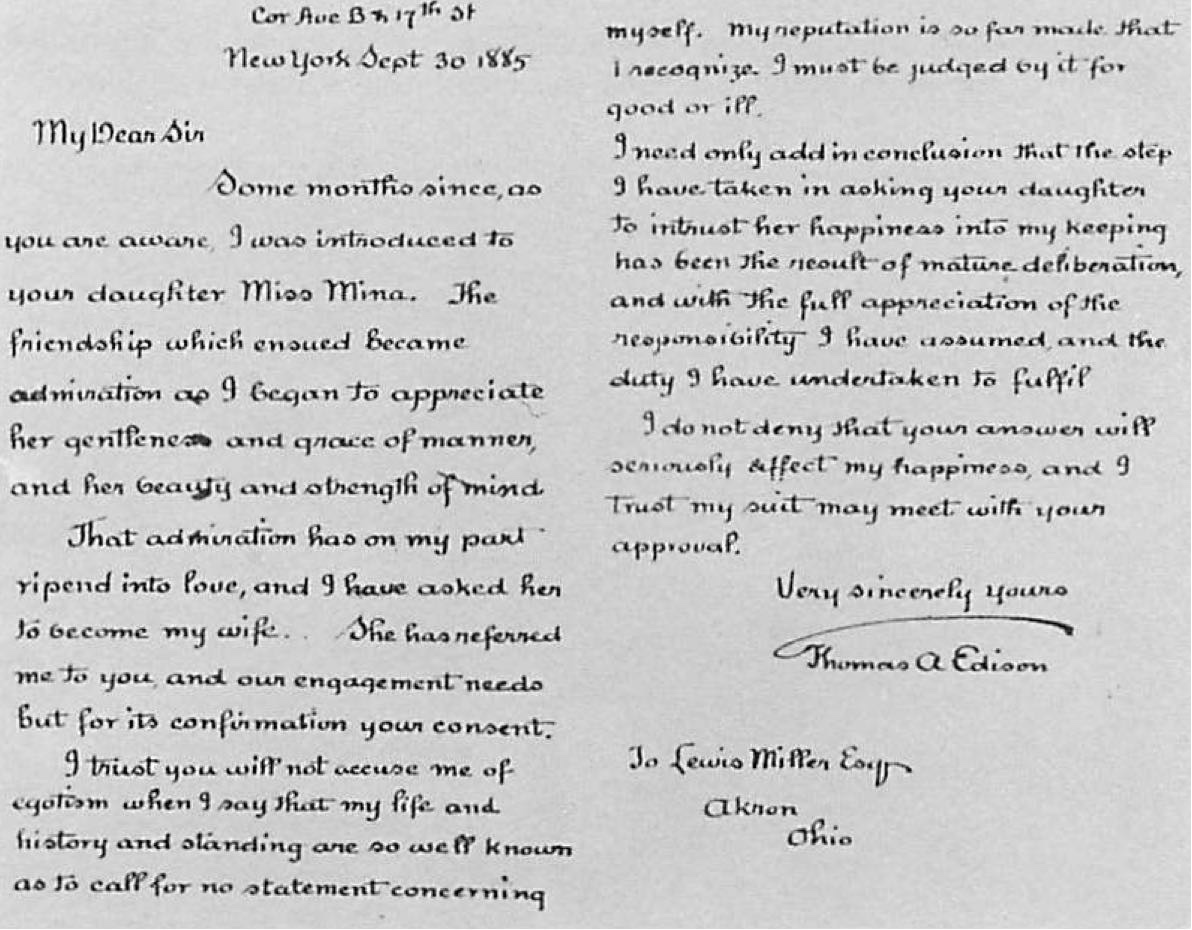 Cor Ave B & 17th St
New York Sept 30 1885
My Dear Sir
Some months since, as
you are aware, I was introduced to
your daughter Miss Mina. The
friendship which ensued became
admiration as I began to appreciate
her gentleness and grace of manner,
and her beauty and strength of mind
That admiration has on my part
ripend into love, and I have asked her
to become my wife. She has referred
me to you, and our engagement needs
but for its confirmation your consent.
I trust you will not accuse me of
egotism when I say that my life and
history and standing are so well known
as to call for no statement concerning
myself. My reputation is so far made that
I recognize I must be judged by it for
good or ill.
I need only add in conclusion that the step
I have taken in asking your daughter
to intrust her happiness into my keeping
has been the result of mature deliberation,
and with the full appreciation of the
responsibility I have assumed, and the
duty I have undertaken to fulfil
I do not deny that your answer will
seriously affect my happiness, and I
trust my suit may meet with your
approval.
Very sincerely yours
Thomas A Edison
To Lewis Miller Esq
Akron
Ohio